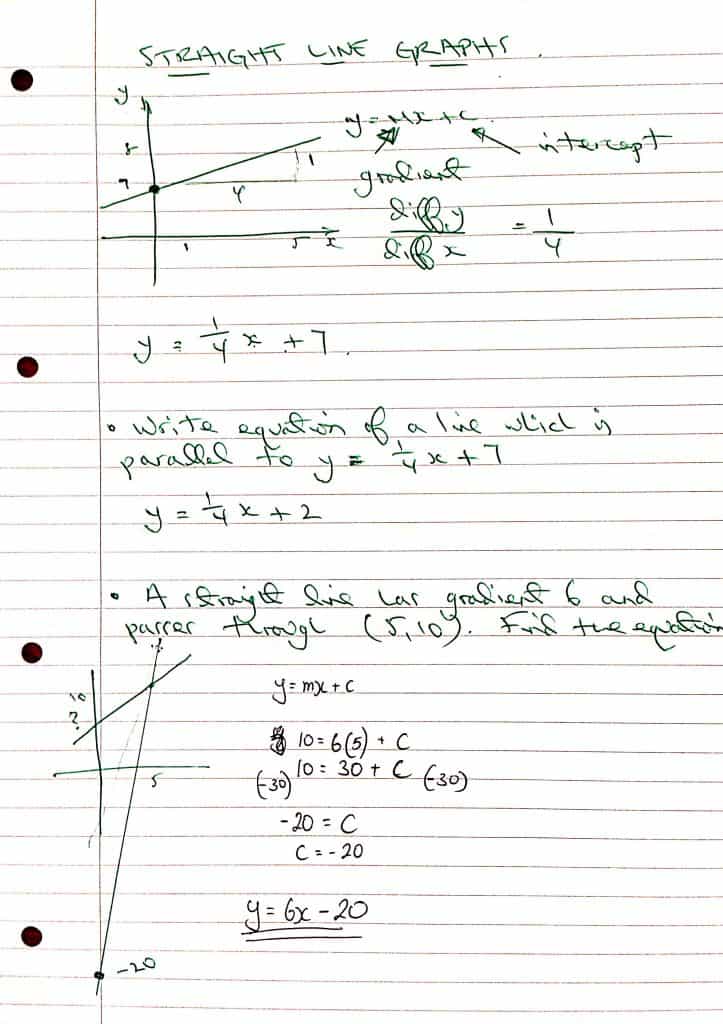 STRAIGHT LINE GRAPHS.
y
y = Mx + C
8
intercept
1
7
4
gradient
diff y / diff x = 1/4
1 5 x
y = 1/4 x + 7.
• Write equation of a line which is
parallel to y = 1/4 x + 7
y = 1/4 x + 2
• A straight line has gradient 6 and
passes through (5,10). Find the equation
y = mx + c
10
?
10 = 6(5) + C
(-30) 10 = 30 + C (-30)
5
-20 = C
C = -20
y = 6x - 20
-20